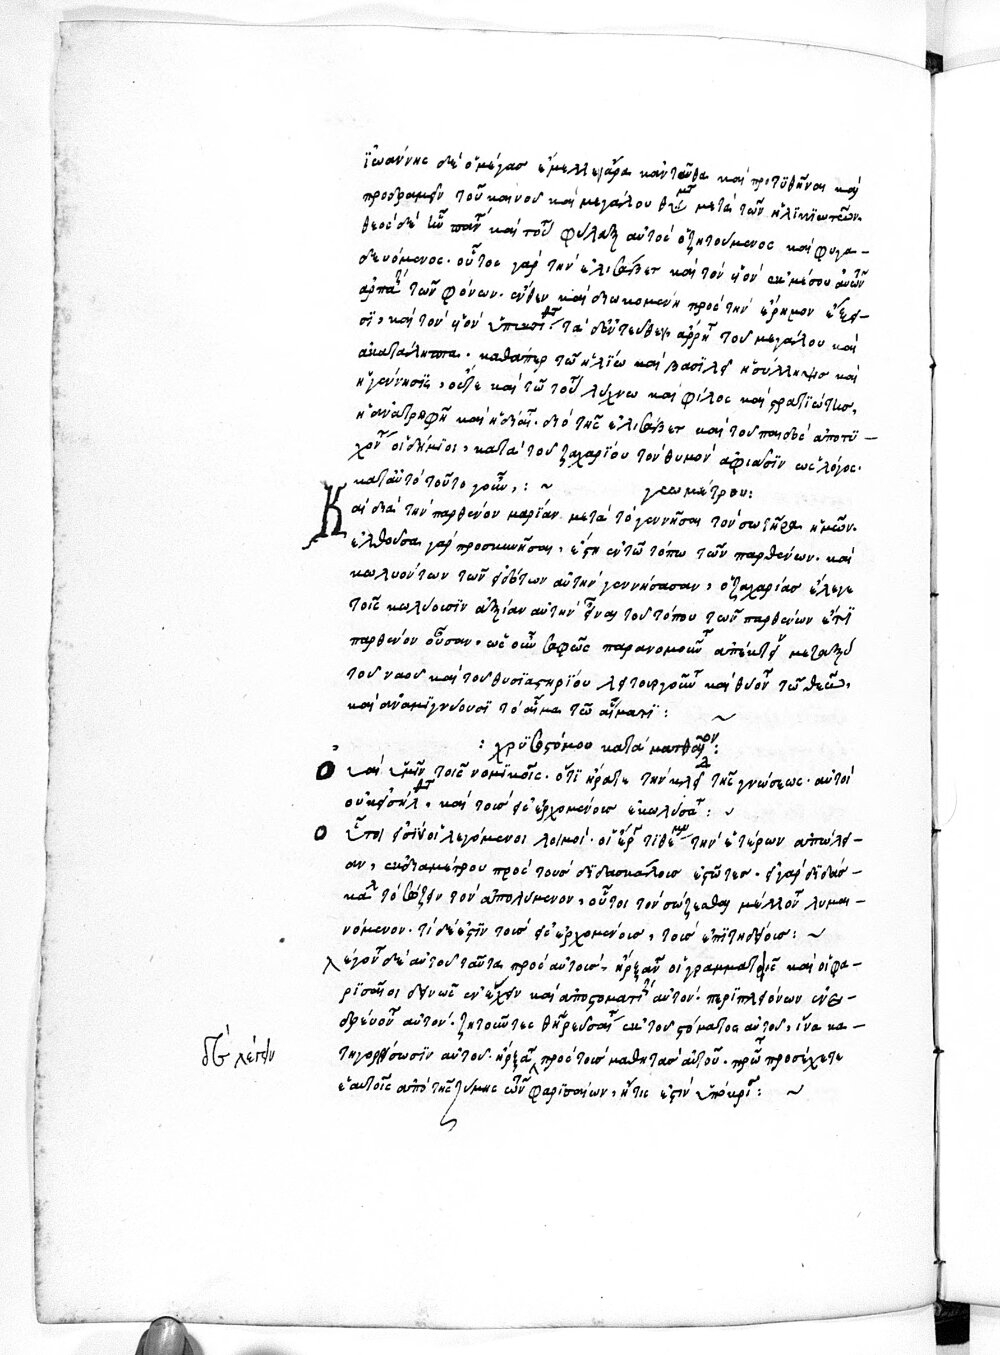 ἰωάννης δὲ ὁ μέγας ἔμελλε μὲν ἄρα κἀνταῦθα καὶ προτυθῆναι καὶ
προδραμεῖν τοῦ καινοῦ καὶ μεγάλου μετὰ τῶν ἡλικιωτῶν.
θεὸς δὲ ἦν καὶ τοῦ φύλαξ αὐτὸς ὁ ζητούμενος καὶ φυγα-
δευόμενος. οὗτος γὰρ τὴν ἐλισάβετ καὶ τὸν υἱὸν ἐκ μέσου αὐτῶν
ἁρπα τῶν φόνων. ἔνθεν καὶ διωκομένη πρὸς τὴν ἔρημον
καὶ τὸν υἱὸν τὰ δ' ἐντεῦθεν ἄρρη τοῦ μεγάλου καὶ
ἀκατάληπτα. καθάπερ τῶ ἡλίω καὶ βασιλεῖ ἡ σύλληψις καὶ
ἡ γέννησις, οὕτω καὶ τῶ τοῦ λύχνω καὶ φίλος καὶ στρατιώτης,
ἡ ἀνατροφὴ καὶ ἡ δίαι. διὸ τῆς ἐλισάβετ καὶ τοῦ παιδὸς ἀποτυ-
χόν οἱ δήμιοι, κατὰ τοῦ ζαχαρίου τὸν θυμὸν ἀφιᾶσιν ὡς λόγος.
κατ' αὐτὸ τοῦτο γοῦν, : ~ γεωμέτρου:
Καὶ διὰ τὴν παρθένον μαρίαν. μετὰ τὸ γεννῆσαι τὸν σωτῆρα ἡμῶν.
ἐλθοῦσα γὰρ προσκυνῆσαι, ἔστη ἐν τῶ τόπω τῶν παρθένων. καὶ
κωλυόντων τῶν εἰδότων αὐτὴν γεννήσασαν, ὁ ζαχαρίας ἔλεγε
τοῖς κωλύουσιν ἀξίαν αὐτὴν εἶναι τοῦ τόπου τῶν παρθένων ἔτι
παρθένον οὖσαν. ὡς οὖν σαφῶς παρανομοῦν ἀπέκτει μεταξὺ
τοῦ ναοῦ καὶ τοῦ θυσιαστηρίου λειτουργοῦν καὶ θύον τῶ θεῶ,
καὶ ἀναμιγνύουσι τὸ αἷμα τῶ αἵματι: ~
: χρυσοστόμου κατὰ ματθαῖον:
Οὐαὶ ὑμῖν τοῖς νομικοῖς. ὅτι ἤρατε τὴν κλεῖδα τῆς γνώσεως. αὐτοὶ
οὐκ εἰσήλ, καὶ τοὺς εἰσερχομένους ἐκωλύσα: ~
Οὗτοι εἰσὶν οἱ λεγόμενοι λοιμοί. οἱ ἔρ τιθέμενοι τὴν ἑτέρων ἀπώλει-
αν, ἐκ διαμέτρου πρὸς τοὺς διδασκάλους ἑστῶτες. εἰ γὰρ διδάσ-
κα τὸ σώζειν τὸν ἀπολύμενον, οὗτοι τὸν σώζεσθαι μέλλον λυμαι-
νόμενον. τί δέ ἐστιν τοὺς εἰσερχομένους, τοὺς ἐπιτηδείους: ~
λέγον δὲ αὐτοῦ ταῦτα πρὸς αὐτούς, ἤρξαν οἱ γραμματεῖς καὶ οἱ φα-
ρισαῖοι δεινῶς ἐνέχειν καὶ ἀποστοματί αὐτόν. περὶ πλειόνων ἐνε-
δρεύον αὐτόν. ζητοῦντες θηρεῦσαί ἐκ τοῦ στόματος αὐτοῦ, ἵνα κα-
τηγορήσωσιν αὐτοῦ. ἤρξα πρὸς τοὺς μαθητὰς αὐτοῦ. πρῶ προσέχετε
ἑαυτοῖς ἀπὸ τῆς ζύμης τῶν φαρισαίων, ἥτις ἐστὶν ὑπόκρι: ~
λέγειν